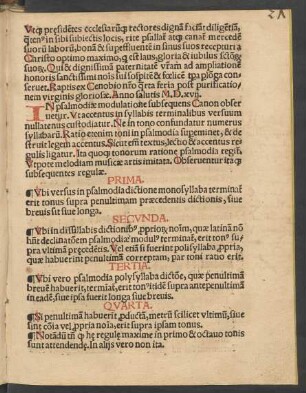 Vtcꝗ preſidētes eccleſiarū rectores dignā faciāt diligētiā,
qͣtenꝰ in ſibi ſubiectis locis, rite pſallāt atqꝫ canāt mercedē
ſuorū laborū, bonā & ſupeffluentē in ſinus ſuos recepturi a
Chriſto optimo maximo, q eſt laus, gloria & iubilus ſctorꝫ
ſuoꝝ. Quā digniſſimā paternitatē vram ad ampliationē
honoris ſanctiſſimi noīs ſui ſoſpitē & fœlicē ipa ꝓloga con
ſeruet. Raptis ex Cenobio nꝛo qͣrta feria poſt purificatio-
nem virginis glorioſæ. Anno ſalutis M.D.xvij.
IN pſalmodiæ modulatiōe ſubſequens Canon obſer
uetur. Vt accentus in ſyllabis terminalibus verſuum
nullatenus cuſtodiatur. Ne in tono confundatur numerus
ſyllabarū. Ratio etenim toni in pſalmodia ſupeminet, & de
ſtruit legem accentus. Sicut eīm textus, lectio & accentus re
gulis ligatur. Ita quoqꝫ tonorum ratione pſalmodia regiſ.
Vtpote melodiam muſicæ artis imitata. Obſeruentur itaqꝫ
ſubſequentes regulæ.
PRIMA.
¶Vbi verſus in pſalmodia dictione monoſyllaba terminat̄
erit tonus ſupra penultimam præcedentis dictionis, ſiue
breuis ſit ſiue longa.
SECVNDA.
¶Vbi in diſſyllabis dictionibꝰ, ꝓprioꝝ, noīm, quæ latinā nō
hn̄t declinatōem pſalmodiæ moduſ terminat̄, erit tonꝰ ſu-
pra vltimā p̄cedētis. Vel etiā ſi fuerint polyſyllaba, ꝓpria,
quæ habuerint penultimā correptam, par toni ratio erit.
TERTIA.
¶Vbi vero pſalmodia polyſyllaba dictōe, quæ penultimā
breuē habuerit, termīat̄, erit tonꝰ itidē ſupra antepenultimā
in eadē, ſiue ipſa fuerit longa ſiue breuis.
QVARTA.
¶Si penultimā habuerit ꝓductā, metrū ſcilicet vltimū, ſiue
ſint cōia vel ꝓpria noīa, erit ſupra ipſam tonus.
¶Notādū tn̄ ꝙ hę regulę maxime in primo & octauo tonis
ſunt attendendę. In alijs vero non ita.